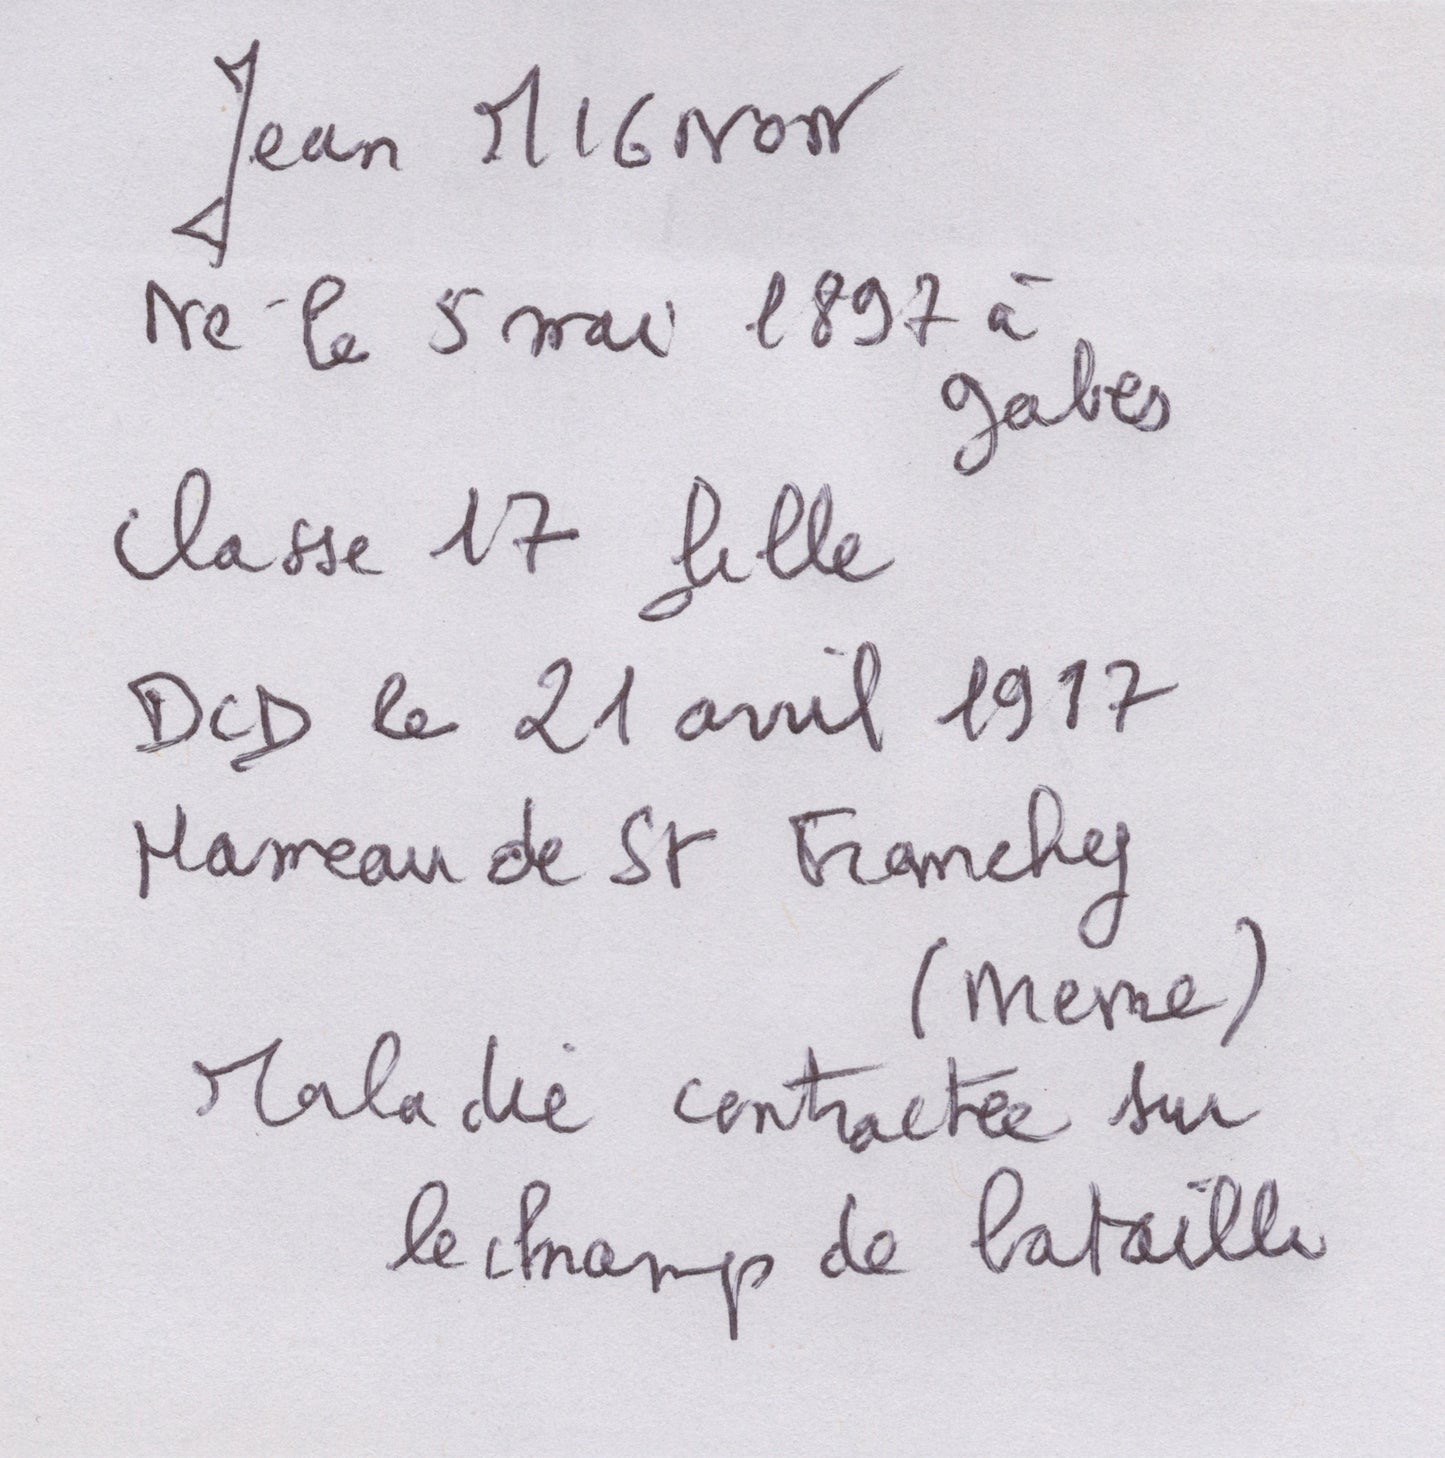 Jean MIGNON
Né le 5 mai 1897 à
Gabes
Classe 17
DCD le 21 avril 1917
Hameau de St Franchy
(Merne)
Maladie contractée sur
le champ de bataille